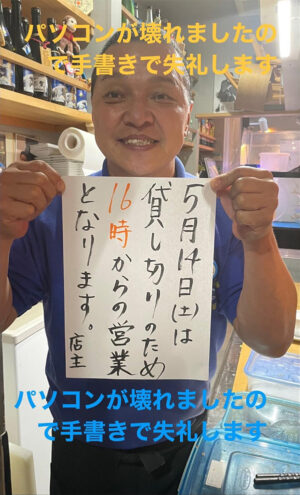 パソコンが壊れましたの
で手書きで失礼します
5月14日(土)は
貸し切りのため
16時からの営業
となります。
店主
パソコンが壊れましたの
で手書きで失礼します